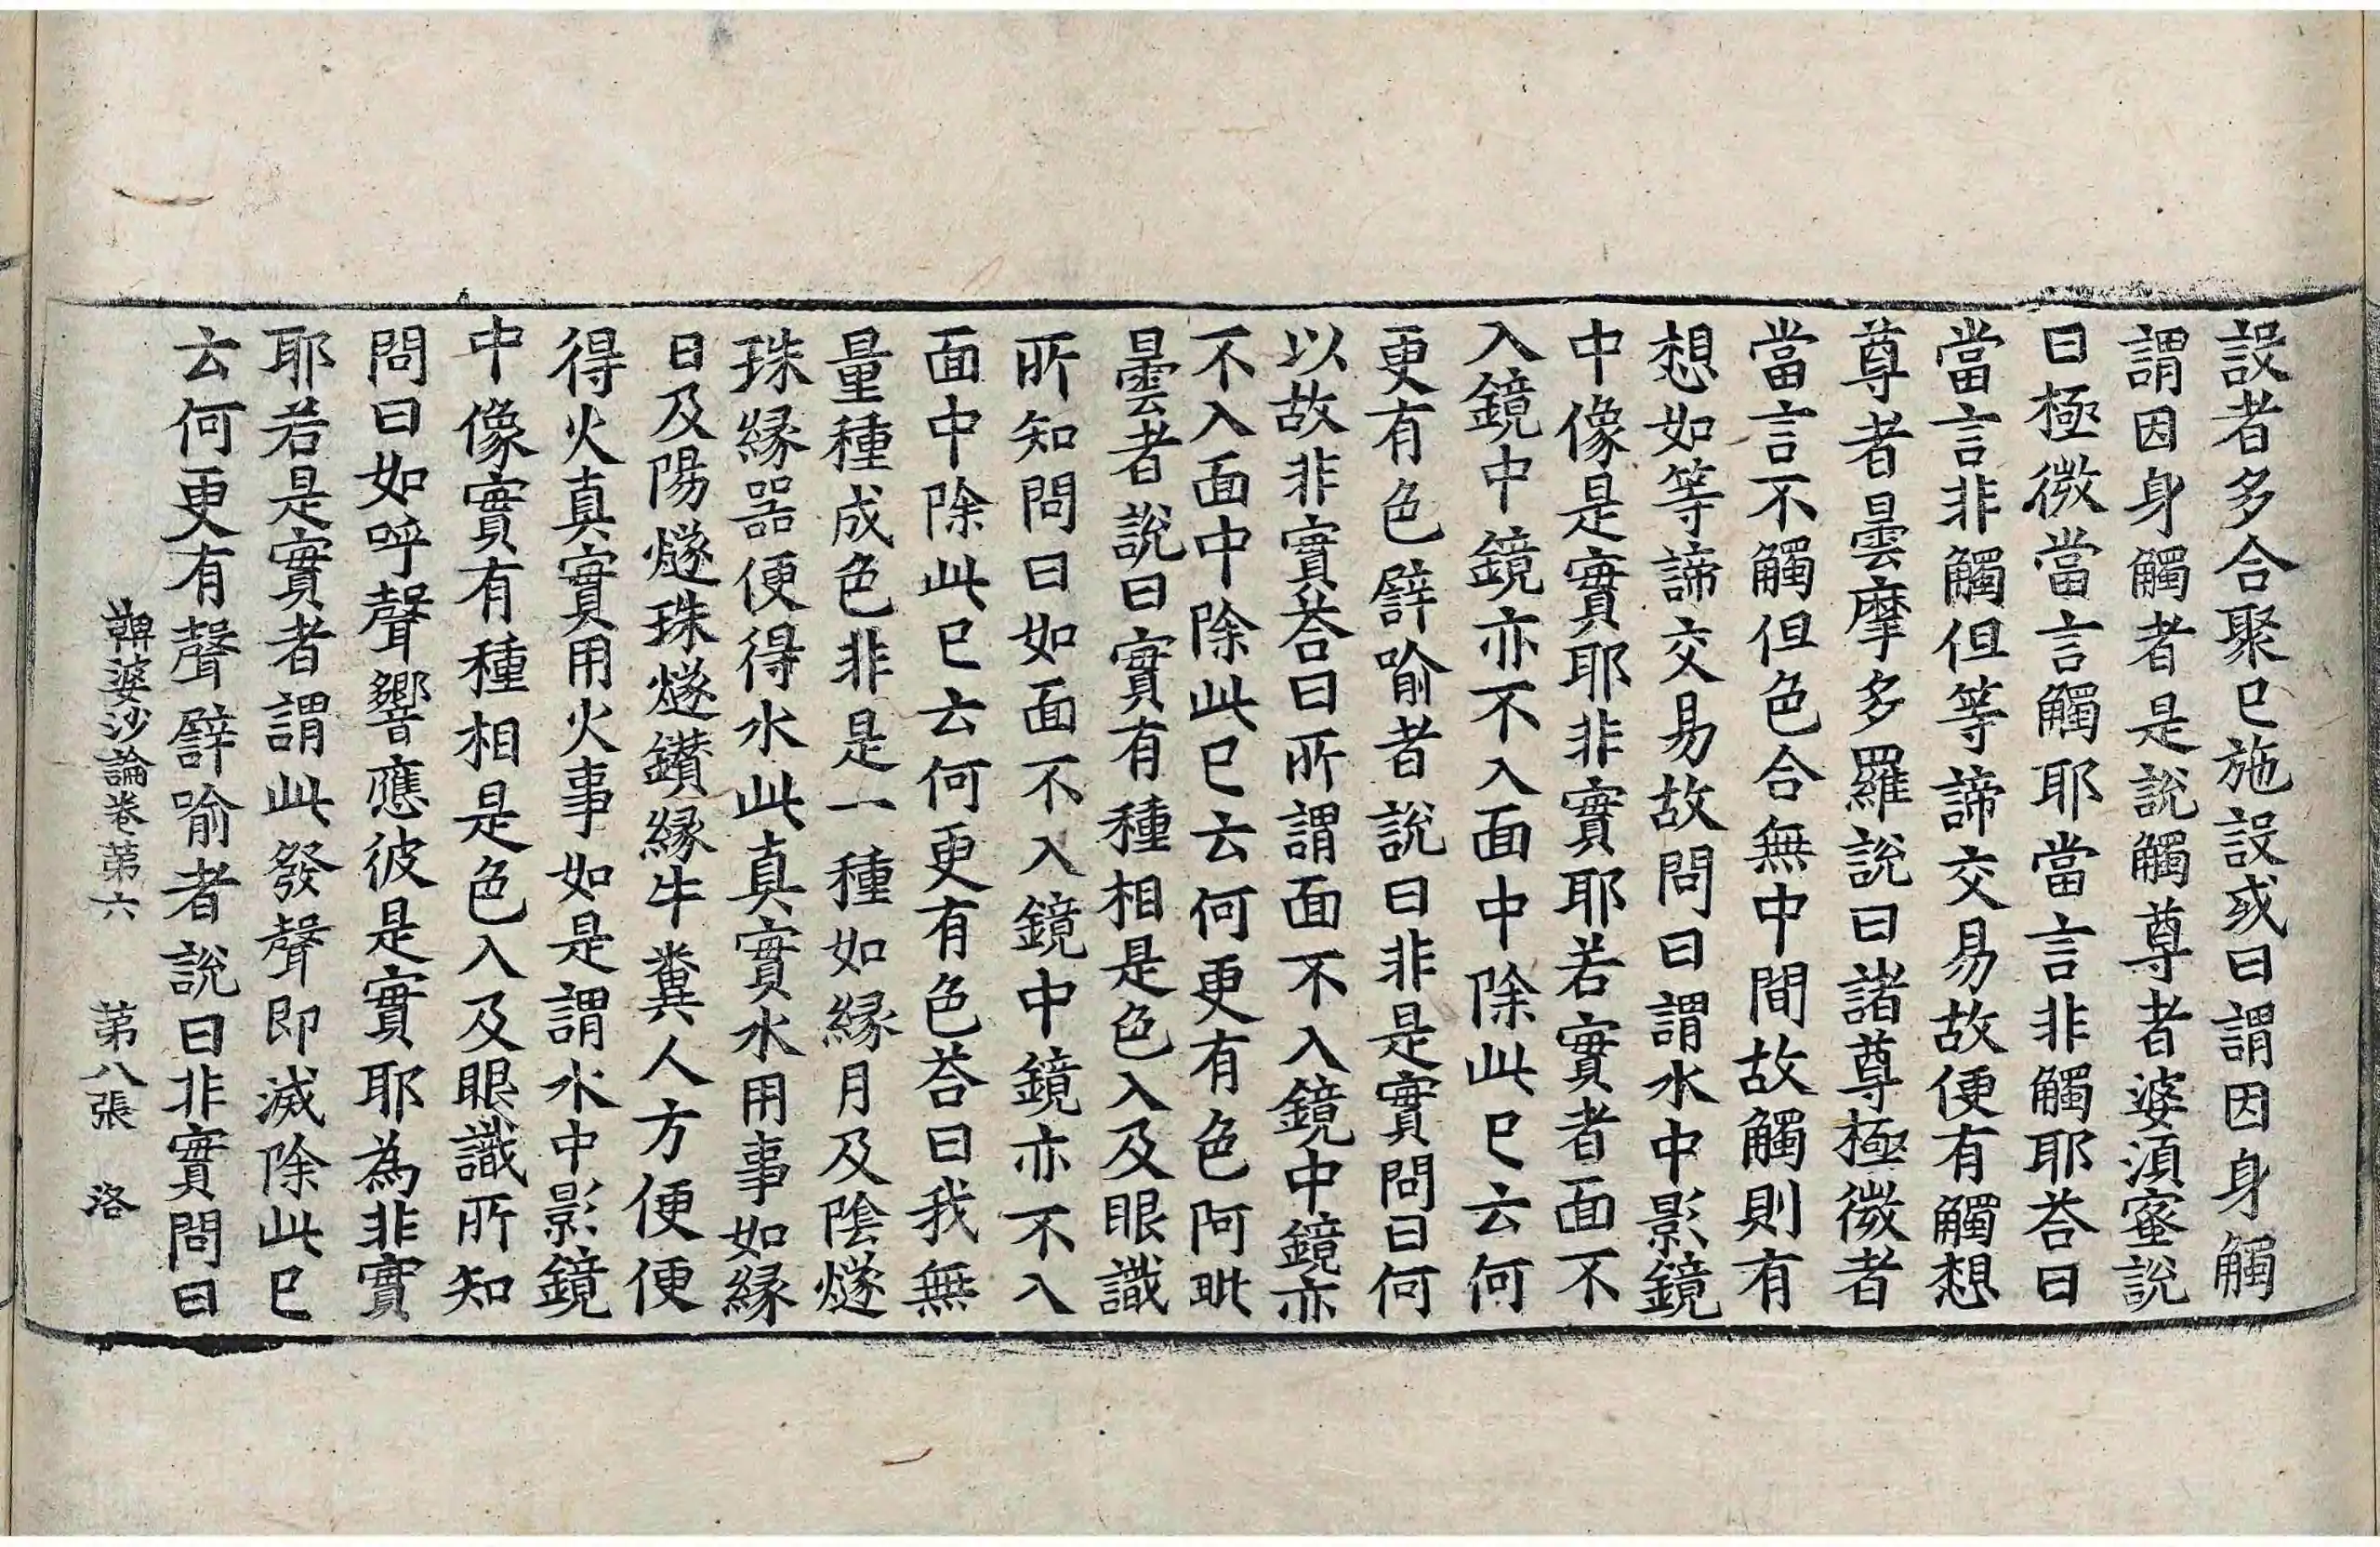 設者多合聚已施設或曰謂因身觸
謂因身觸者是說觸尊者婆須蜜說
曰極微當言觸耶當言非觸耶荅曰
當言非觸但等諦交易故便有觸想
尊者曇摩多羅說曰諸尊極微者
當言不觸但色合無中間故觸則有
想如等諦交易故問曰謂水中影鏡
中像是實耶非實耶若實者面不
入鏡中鏡亦不入面中除此已云何
更有色譬喻者說曰非是實問曰何
以故非實荅曰所謂面不入鏡中鏡亦
不入面中除此已云何更有色阿毗
曇者說曰實有種相是色入及眼識
所知問曰如面不入鏡中鏡亦不入
面中除此已云何更有色荅曰我無
量種成色非是一種如緣月及陰燧
珠緣器便得水此真實水用事如緣
日及陽燧珠燧鑽緣牛糞人方便便
得火真實用火事如是謂水中影鏡
中像實有種相是色入及眼識所知
問曰如呼聲響應彼是實耶為非實
耶若是實者謂此發聲即滅除此已
云何更有聲譬喻者說曰非實問曰
鞞婆沙論卷第六 第八張 洛